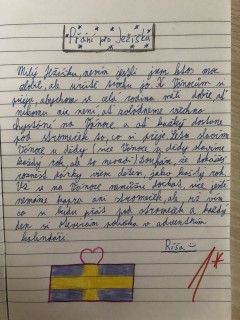 Přání pro Ježíška
Milý Ježíšku, nevím jestli jsem letos moc
zlobil, ale určitě trochu jo. K Vánocům si
přeju, abychom se celá rodina měli dobře, ať
nikomu nic není, ať zvládneme všechno
chystání na Vánoce a ať každý dostane
pod stromeček to, co si přeje. Letos slavíme
Vánoce u dědy (sice Vánoce u dědy slavíme
každý rok, ale to nevadí) doufám, že dokážeš
roznést dárky všem dětem, jako každý rok.
Už se na Vánoce nemůžu dočkat, sice ještě
nemáme kapra ani stromeček, ale já vím
co si budu přát pod stromeček a každý
den si otevírám políčko v adventním
kalendáři.
Ríša
1*